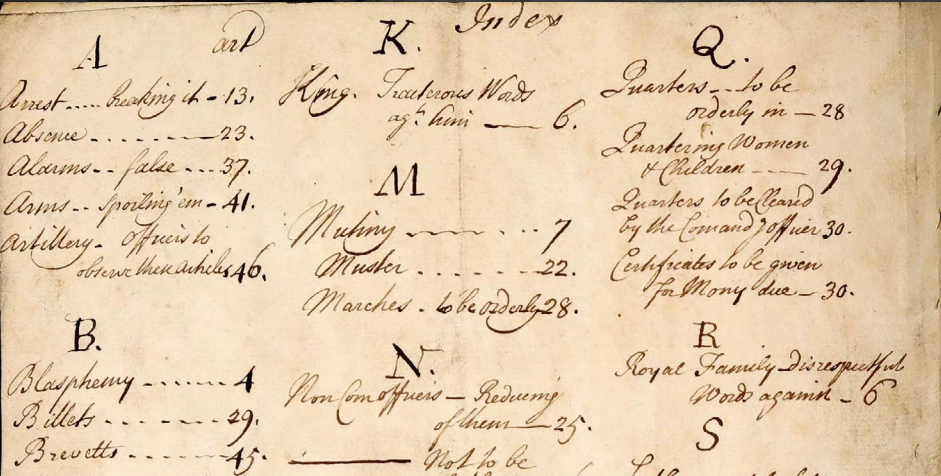 Index
A
art
Arrest ..... breaking it - 13.
Absence . . . . . . . 23.
Alarms .. false .... 37.
Arms .. spoiling 'em - 41.
Artillery - officers to
observe these articles 46.
B.
Blasphemy ------ 4
Billets ------ 29.
Brevetts ------ 45.
K.
King. Traiterous Words
agt. him —— 6.
M
Mutiny ------ ... 7
Muster ...... 22.
Marches . to be orderly 28.
N.
Non Com officers — Reducing
of them — 25.
—— Not to be
Q.
Quarters --- to be
orderly in — 28
Quartering Women
& Children ---- 29.
Quarters to be Cleared
by the Comandg officer 30.
Certificates to be given
for Mony due — 30.
R
Royal Family - disrespectful
Words - 6
S